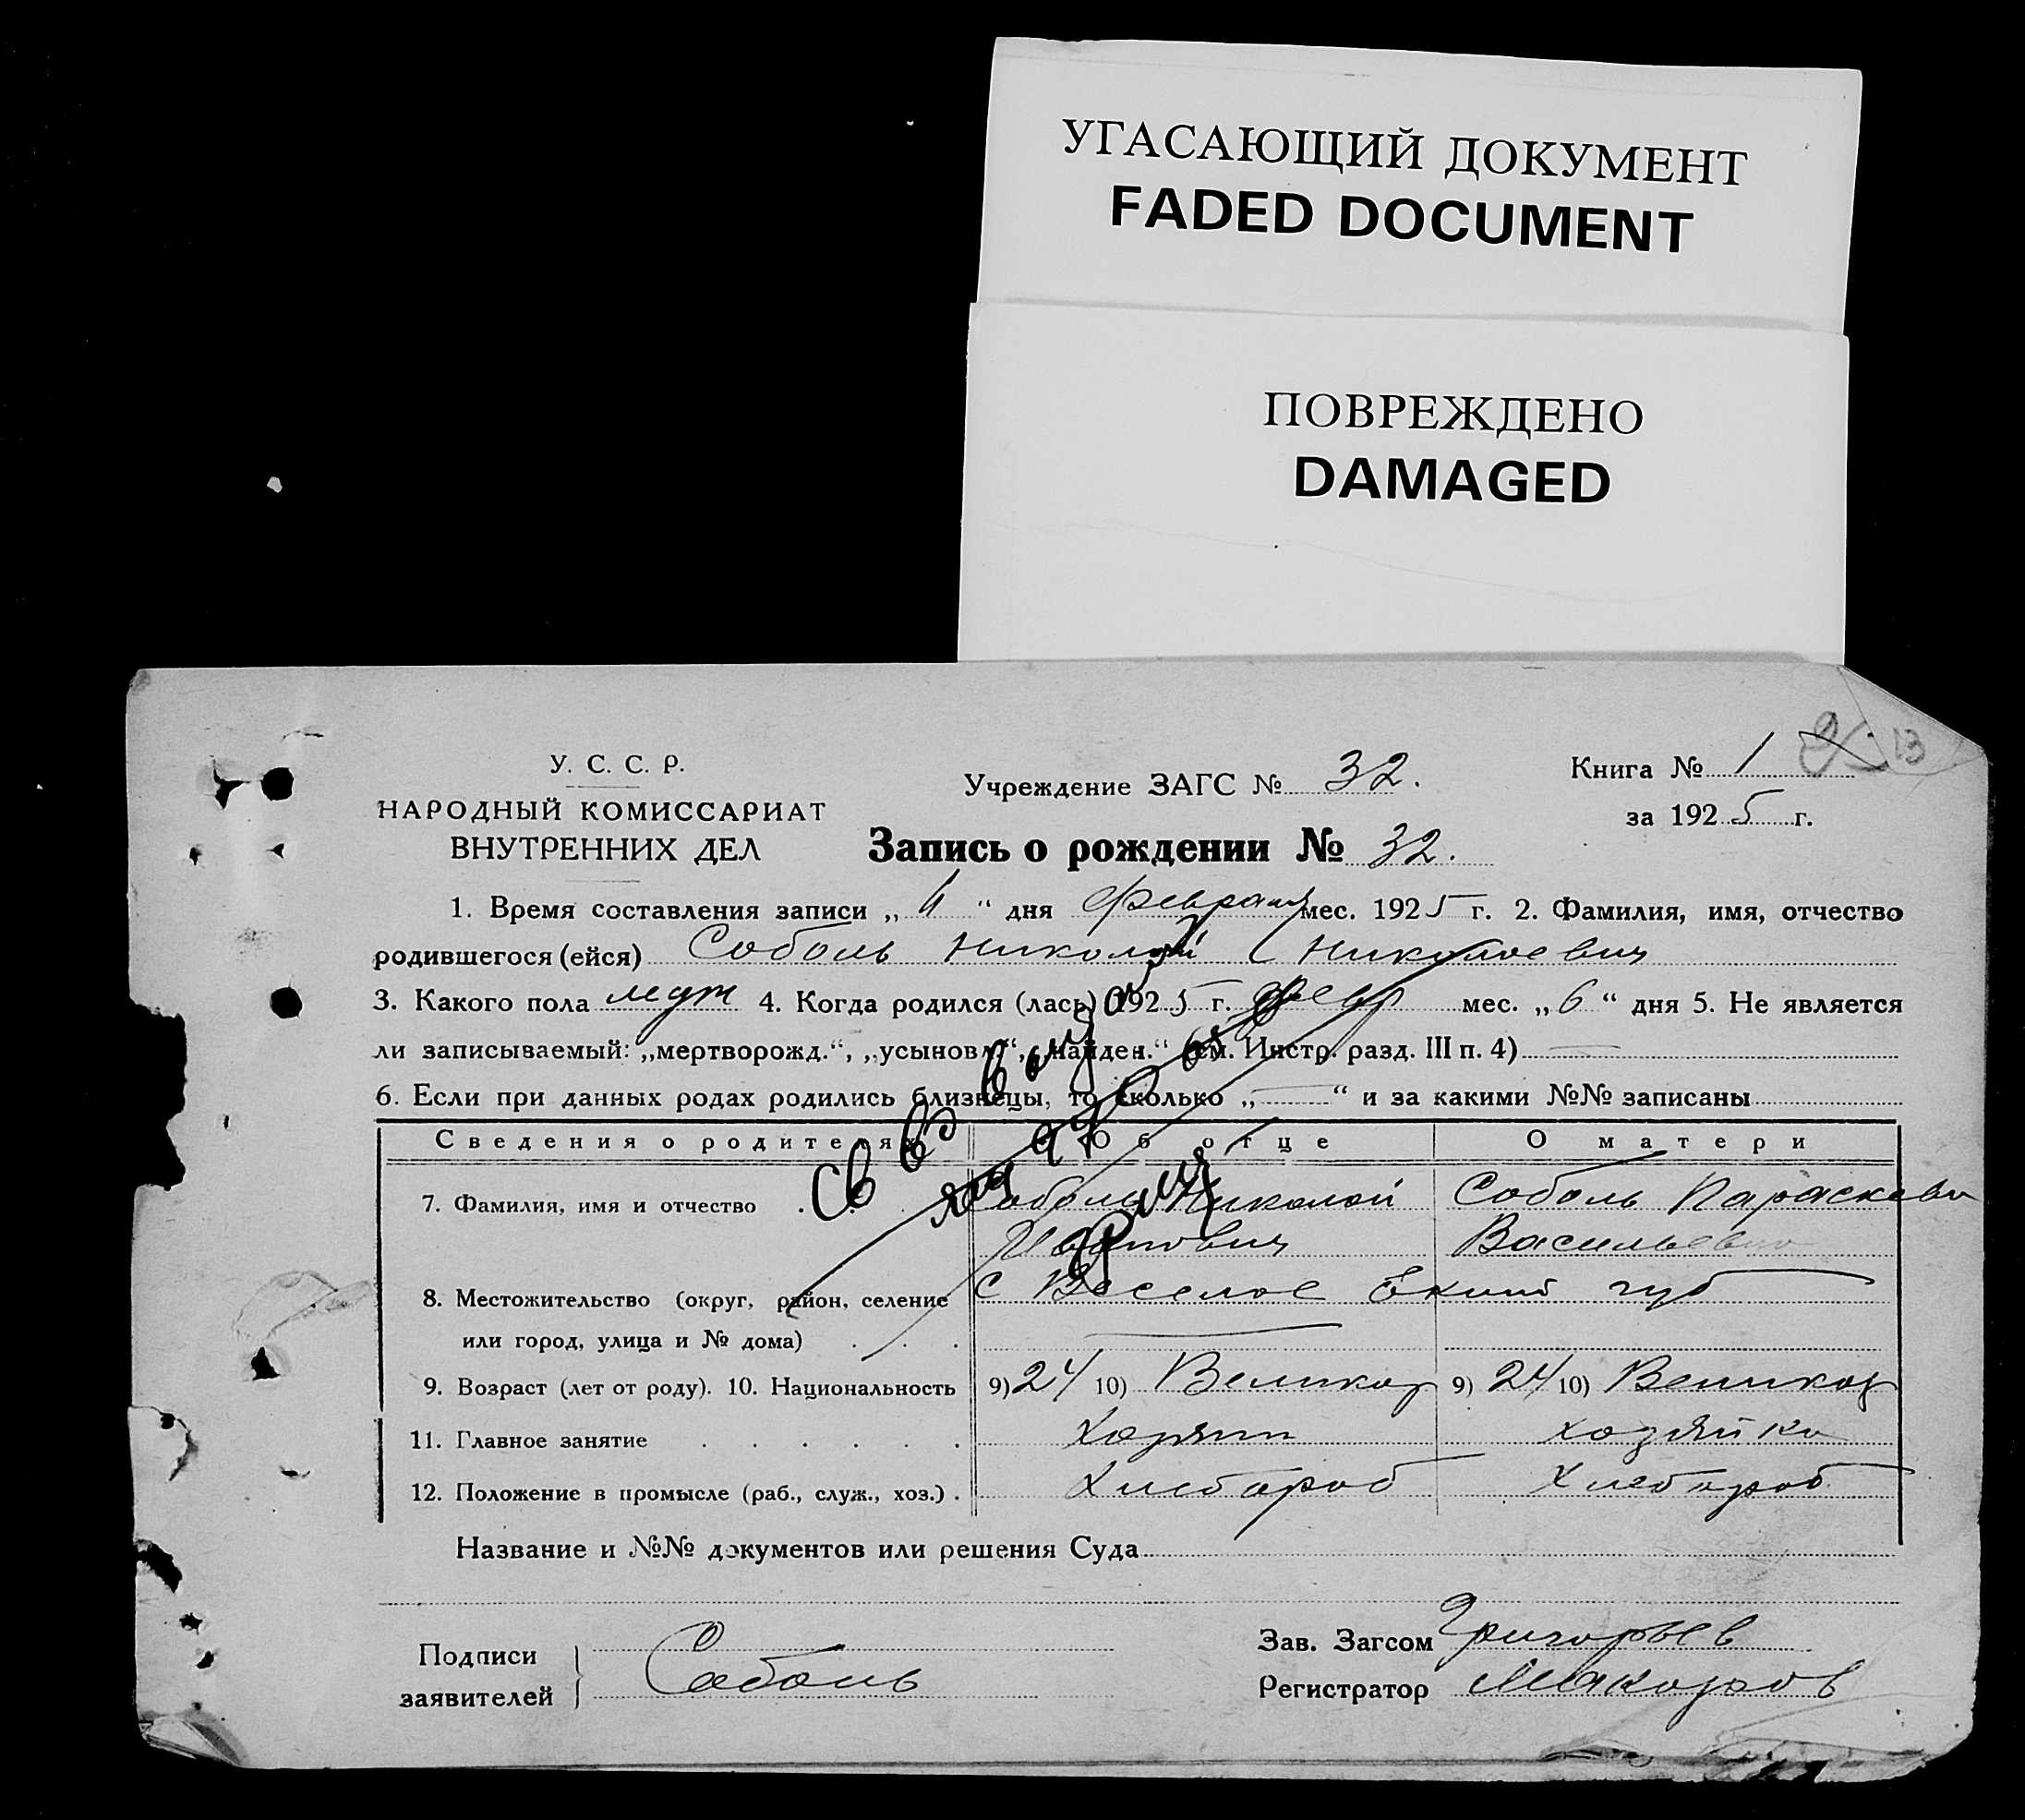 УГАСАЮЩИЙ ДОКУМЕНТ
FADED DOCUMENT
ПОВРЕЖДЕНО
DAMAGED
13
У. С. С. Р.
НАРОДНЫЙ КОМИССАРИАТ
ВНУТРЕННИХ ДЕЛ
Учреждение ЗАГС № 32.
Книга № 1
за 1925 г.
Запись о рождении № 32.
1. Время составления записи „ “ дня февраля мес. 1925 г. 2. Фамилия, имя, отчество
родившегося (ейся) Соболь Николай Николаевич
3. Какого пола муж 4. Когда родился (лась) 1925 г. февр мес. „6“ дня 5. Не является
ли записываемый: „мертворожд.“, „усыновл.“, „найден.“ (см. Инстр. разд. III п. 4)
6. Если при данных родах родились близнецы, то сколько „—“ и за какими №№ записаны
Сведения о родителях Об отце О матери
7. Фамилия, имя и отчество Соболь Николай Соболь Параскева
Иванович Васильевна
8. Местожительство (округ, район, селение с Веселое Екат губ
или город, улица и № дома)
9. Возраст (лет от роду). 10. Национальность 9) 24 10) Великор 9) 24 10) Великор
11. Главное занятие Хозяин хозяйка
12. Положение в промысле (раб., служ., хоз.) Хлебороб Хлебороб
Название и №№ документов или решения Суда
Подписи
заявителей Соболь
Зав. Загсом Григорьев
Регистратор Макаров